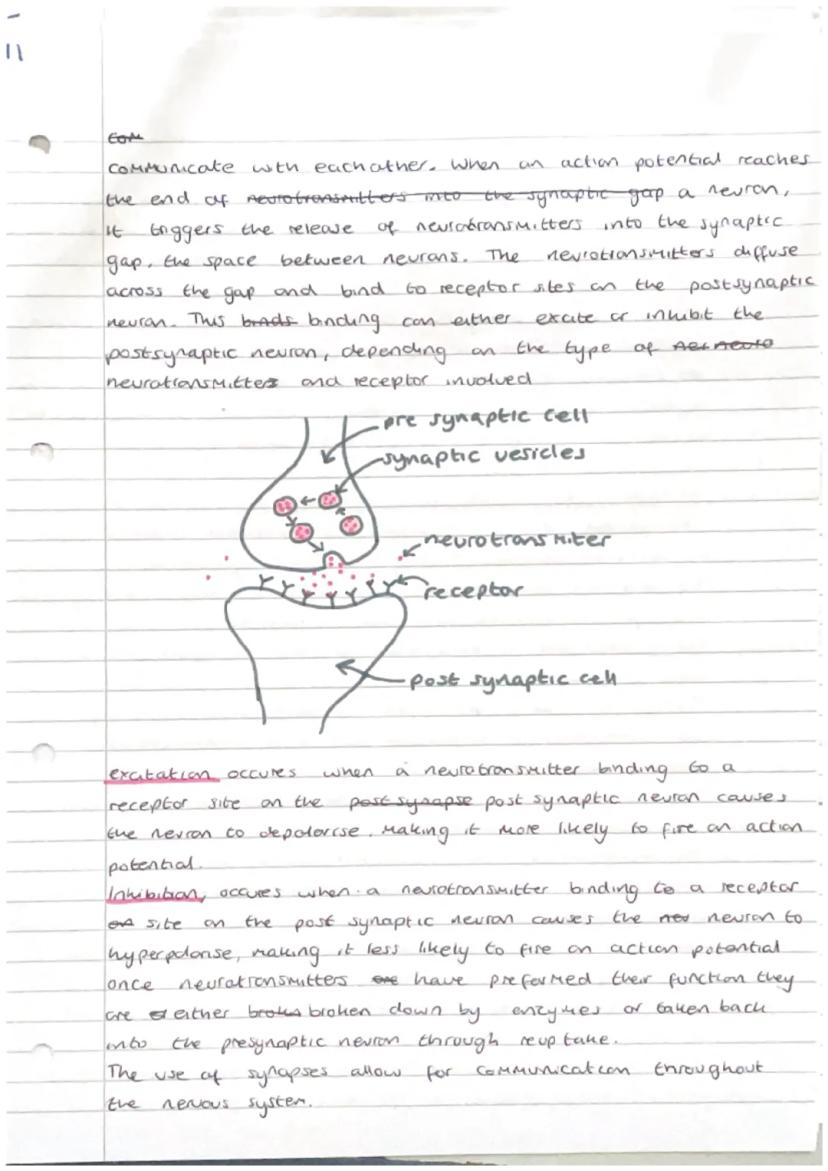 11
Com
communicate with eachother. When an action potential reaches
the end of neurotransmitters into the synaptic gap a neuron,
it triggers the release of neurotransmitters into the synaptic
gap, the space between neurons. The neurotransmitters diffuse
across the gap and bind to receptor sites on the postsynaptic
neuron. This binds binding can either excite or inhibit the
postsynaptic neuron, depending on the type of
neurotransmitters and receptor involved
pre synaptic cell
synaptic vesicles
neurotransmiter
receptor
post synaptic cell
excitation occures when a neurotransmitter binding to a
receptor site on the post synapse post synaptic neuron causes
the nevron to depolarise. Making it more likely to fire an action
potential.
Inhibition, occures when a neurotransmitter binding to a receptor
site on the post synaptic neuron causes the neu neuron to
hyperpolarise, making it less likely to fire an action potential
once neurotransmitters have preformed their function they
are either broken down by enzymes or taken back
into the presynaptic nevron through reuptake.
The use of synapses allow for communication throughout
the nervous system.